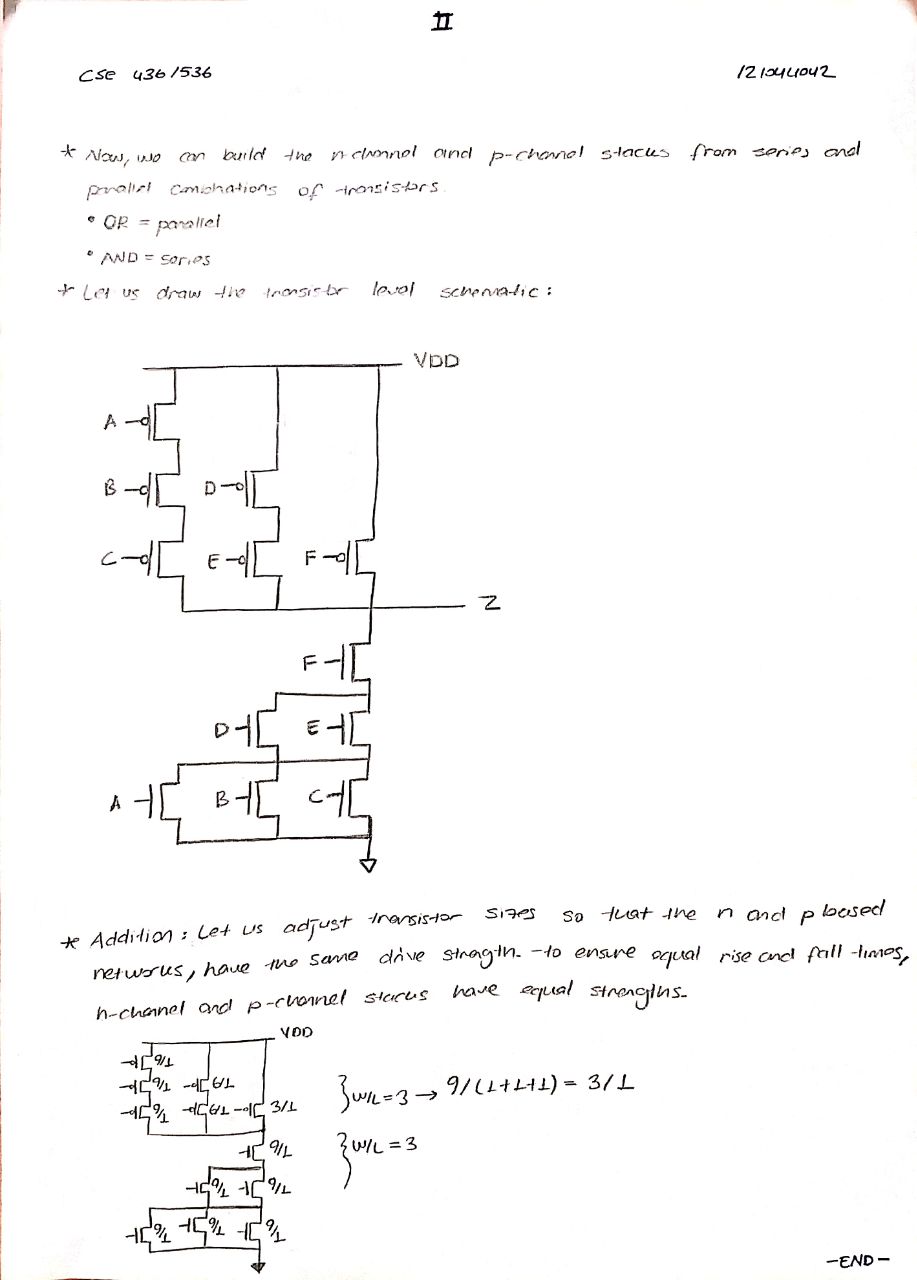 II
CSE 436/536
121044042
* Now, we can build the n-channel and p-channel stacks from series and
parallel combinations of transistors.
• OR = parallel
• AND = series
* Let us draw the transistor level schematic:
VDD
A
B D
C E F
Z
F
D E
A B C
* Addition: Let us adjust transistor sizes so that the n and p based
networks, have the same drive strength. -to ensure equal rise and fall times,
n-channel and p-channel stacks have equal strengths.
VDD
9/1
9/1 6/1
9/1 6/1 3/1
} W/L = 3 → 9/(1+1+1) = 3/1
9/1
} W/L = 3
9/1 9/1
9/1 9/1 9/1
-END-